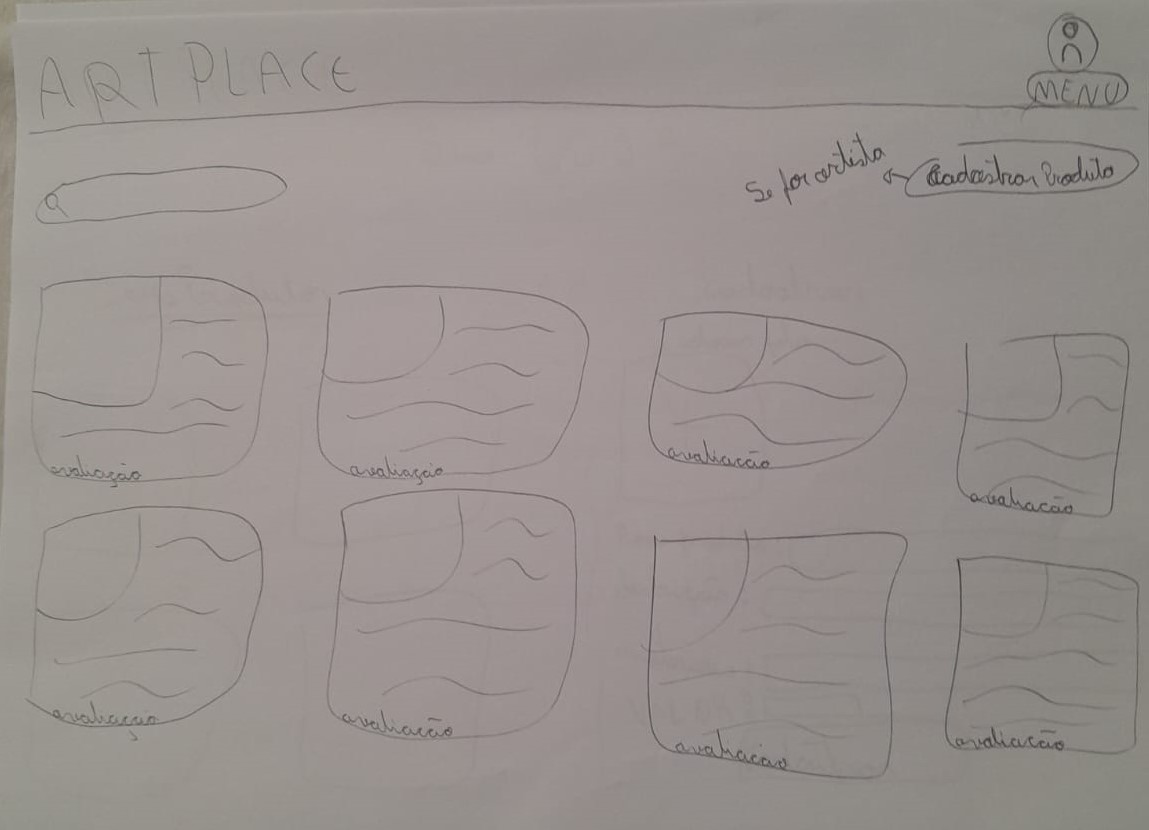 ARTPLACE
MENU
Se for artista
Cadastrar Produto
avaliação
avaliação
avaliacão
avaliacão
avaliação
avaliacão
avaliacão
avaliacão